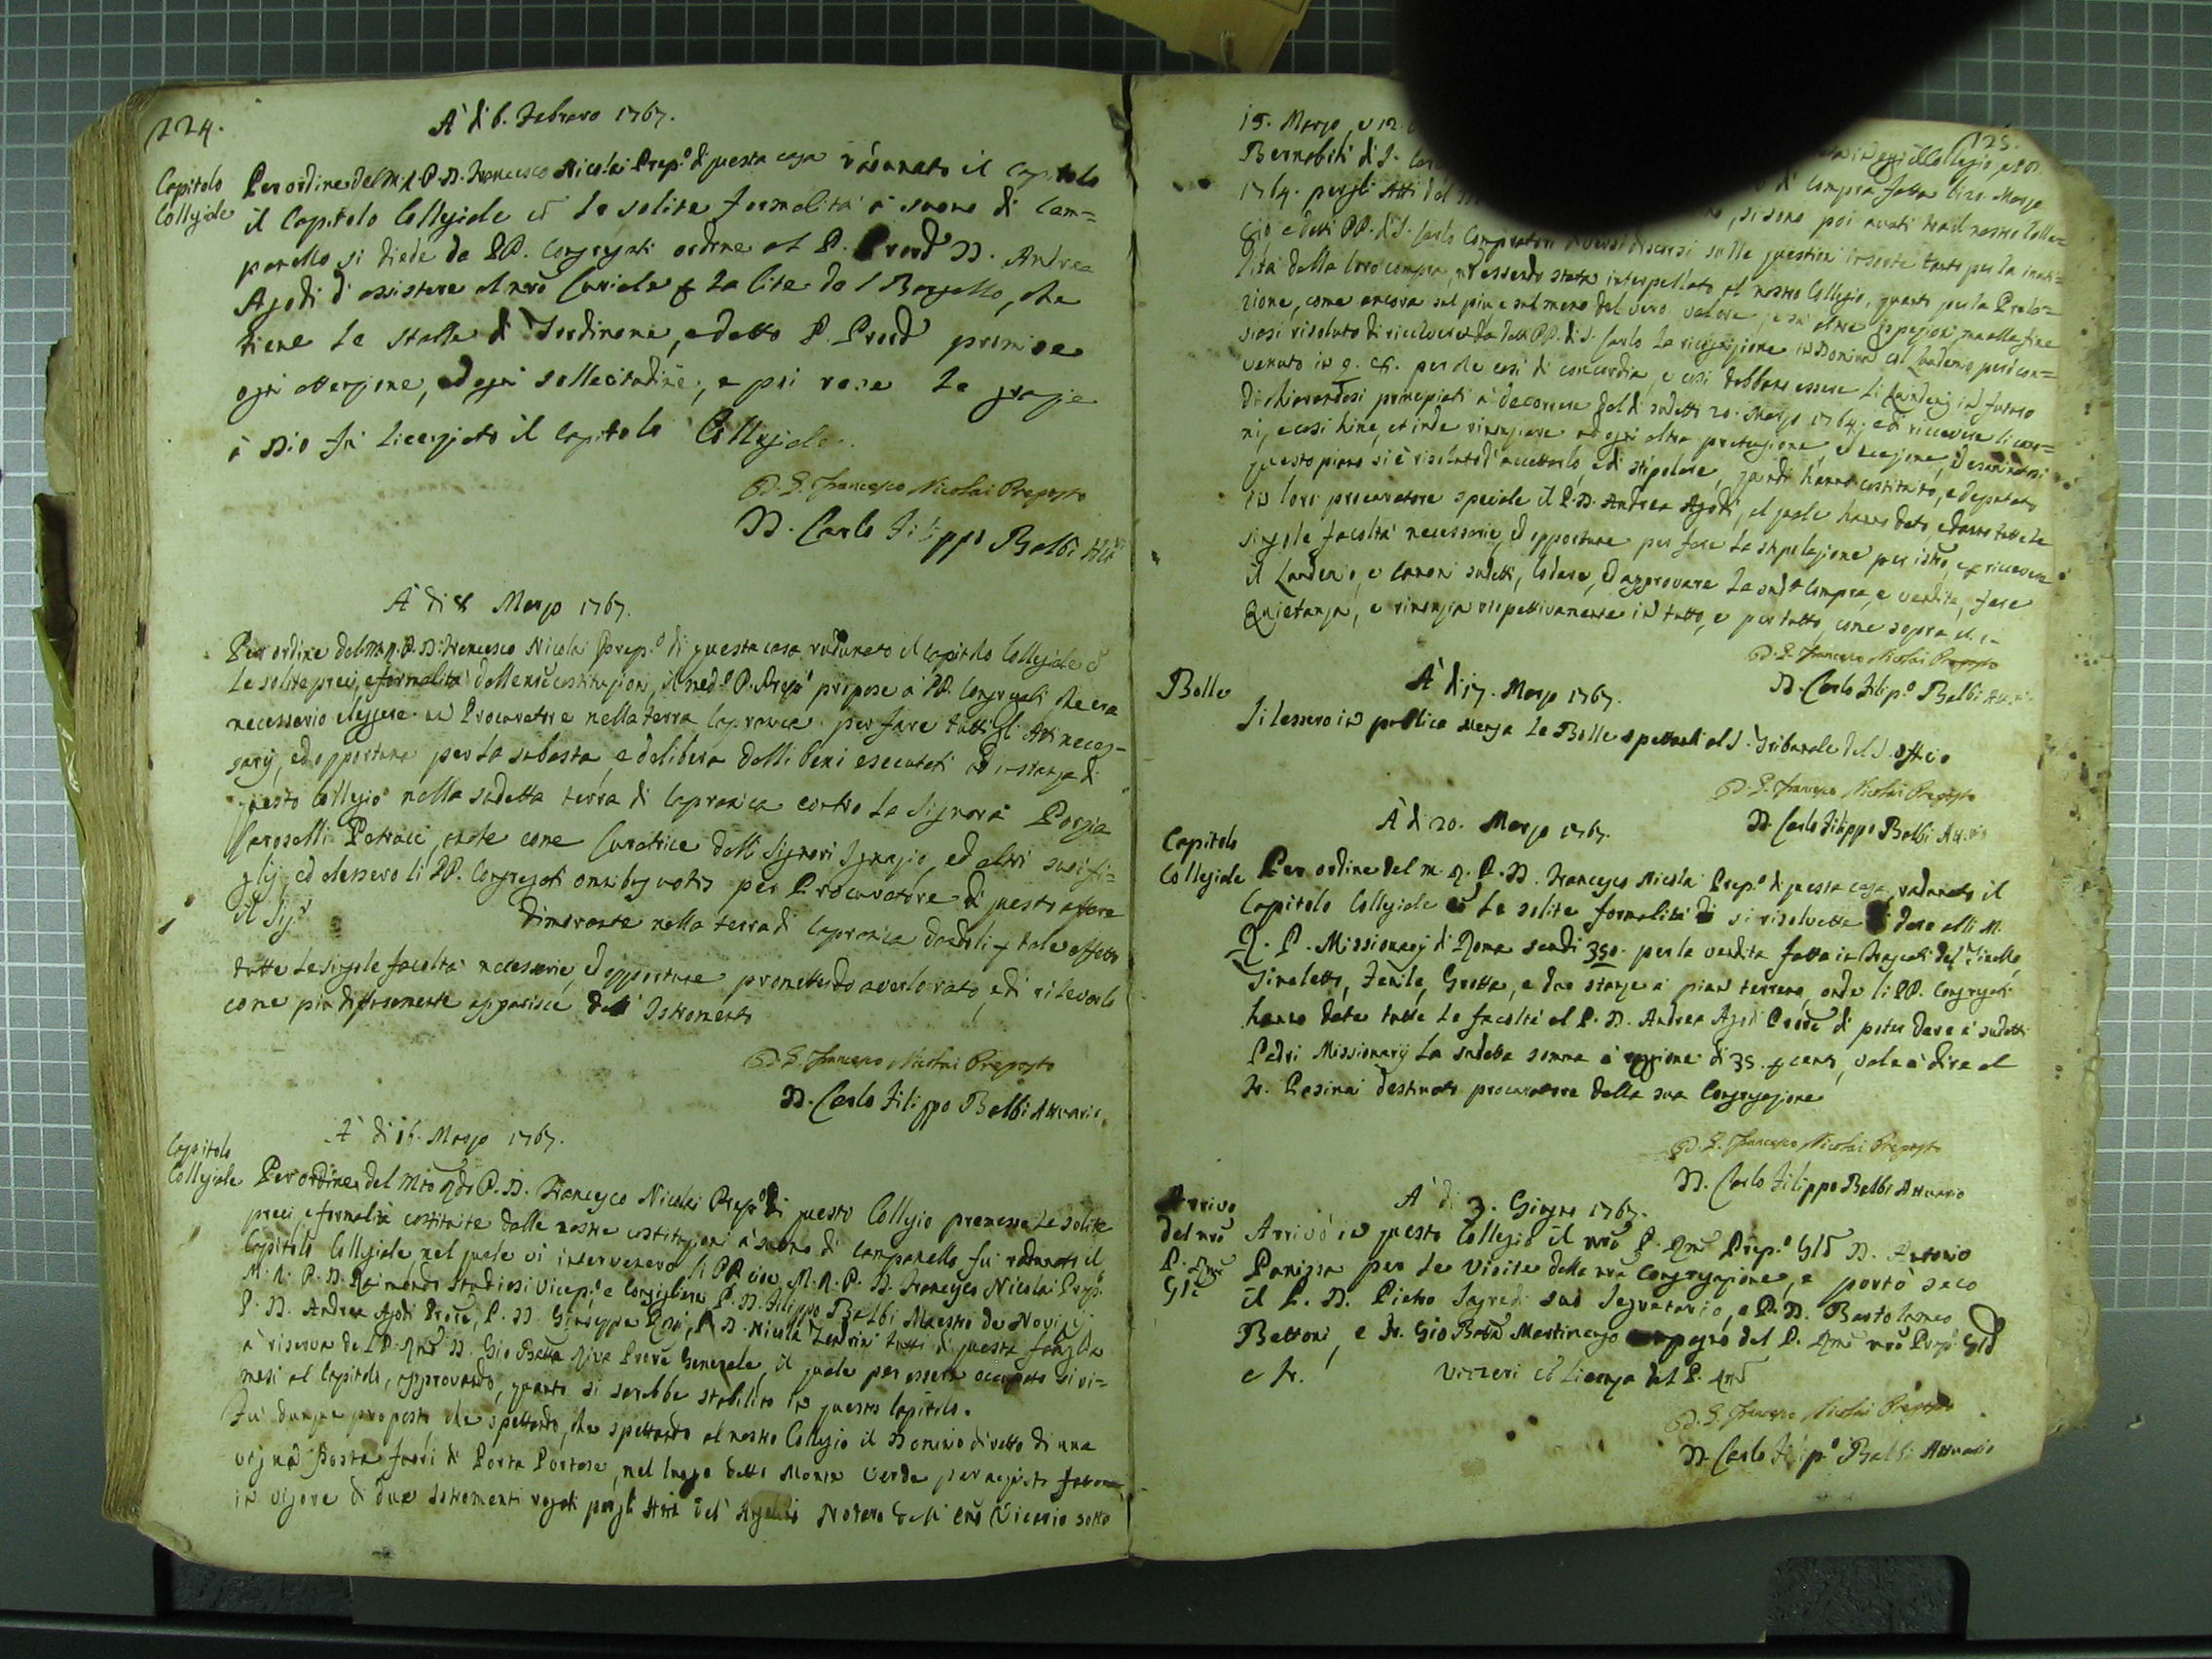 224.
A' di 6. Febraro 1767.
Capitolo
Collegiale
Per ordine del M. R. P. D. Francesco Nicolai Prep.o di questa casa radunato il capitolo
il Capitolo Collegiale cō le solite formalità à suono di cam=
panello si diede da PP. Congregati ordine al P. Procrē D. Andrea
Agodi d'assistere al nrō Curiale p la lite del Bargello, che
tiene le stalle di Tordinone, e detto P. Procrē promise
ogni attenzione, ed ogni sollecitudine, e poi rese le grazie
à Dio fù licenziato il Capitolo Collegiale.
D. G. Francesco Nicolai Preposto
D. Carlo Filippo Balbi Att.
A' di 8 Marzo 1767.
Per ordine del M. R. P. D. Francesco Nicolai Prep.o di questa casa radunato il Capitolo Collegiale cō
le solite preci, e formalità delle nrē costituzioni, il med.o P. Prep.o propose à PP. Congregati che era
necessario eleggere un Procuratore nella terra Capranica per fare tutti gli Atti neces=
sarij, ed opportuni per la subasta, e delibera delli beni esecutati ad instanza di
questo Collegio nella sudetta terra di Capranica contro la Signora Porzia
Caroselli Petrucci, anche come Curatrice delli Signori Ignazio, ed altri suoi fi=
glij, ed elessero li PP. Congregati omnibus votis per Procuratore di questo affare
il Sig.r dimorante nella terra di Capranica dandoli p tale effetto
tutte le singole facoltà necessarie, ed opportune promettendo averlo rato, e di rilevarlo
come più diffusamente apparisce dall' Istromento
D. G. Francesco Nicolai Preposto
D. Carlo Filippo Balbi Attuario
A' di 16. Marzo 1767.
Capitolo
Collegiale
Per ordine del Mto Rdo P. D. Francesco Nicolai Prep.o di questo Collegio premesse le solite
preci e formalità costituite dalle nostre costituzioni à suono di campanello fù radunato il
Capitolo Collegiale, nel quale vi intervenero li PP. cioè M. R. P. D. Francesco Nicolai Prep.o
M. R. P. D. Raimondo Studiosi Vicep.o e Consigliere P. D. Filippo Balbi Maestro de Novizj
P. D. Andrea Agodi Procrē, P. D. Giuseppe P. D. Nicola Zendrini tutti di questa famiglia
à riserva del P. D. Gio Batta Riva Procrē Generale il quale per essere occupato si ri=
mesi al Capitolo, approvando, quanto si sarebbe stabilito in questo Capitolo.
Fù dunque proposto che spettando, che spettando al nostro Collegio il Dominio diretto di una
vigna posta fuori di Porta Portese, nel luogo detto Monte Verde per acquisto fattone
in vigore di due Istromenti rogati per gli Atti del Notaro dell' Vicario sotto
125.
15. Marzo, e 12.
Bernabiti di S. Carlo
1764. per gli Atti del di compra fatta li 20. Marzo
gio e detti PP. di S. Carlo Compratori diversi discorsi sulle questioni insorte tanto per la inua=
lità della loro compra, nō essendo stato interpellato il nostro Collegio, quanto per la Prela=
zione, come ancora sul più, e sul meno del vero valore, ma alla fine
siasi risoluto di ricevere da detti PP. di S. Carlo la ricognizione in Dominū col Laudemio
venuto in per cosi di concordia, e cosi debbano essere li Laudemij in futuro
dichiarandosi principiati à decorrere del di sudetto 20. Marzo 1764, e di ricevere li cano=
ni, e cosi hinc, et inde rinunziare ad ogni altra pretenzione, ed eccezione, ed esaminatosi
questo piano si è risoluto d'accettarlo, e di stipolare, quindi hanno costituito, e deputato
in loro procuratore speciale il P. D. Andrea Agodi, al quale hanno dato, e danno tutte le
singole facoltà necessarie, ed opportune per fare la stipolazione per istrō, e p ricevere
il Laudemio, e Canoni sudetti, lodare, ed approvare la sud.a Compra, e vendita, fare
Quietanza, e rinunzia rispettivamente in tutto, e per tutto, come sopra
D. G. Francesco Nicolai Preposto
D. Carlo Filip.o Balbi
Bolle
A' di 17. Marzo 1767.
Si lessero in publica Mensa le Bolle spettanti al S. Tribunale del S. Offitio
D. G. Francesco Nicolai Preposto
D. Carlo Filippo Balbi
A' di 20. Marzo 1767.
Capitolo
Collegiale
Per ordine del m. R. P. D. Francesco Nicolai Prep.o di questa casa, radunato il
Capitolo Collegiale cō le solite formalità si risolvette di dare alli M.
R. P. Missionarij di Roma scudi 350. per la vendita fatta in Frascati del Tinello,
Tinelletto, Fenile, Grotta, e due stanze à pian terreno, onde li PP. Congregati
hanno data tutte le facoltà al P. D. Andrea Agodi Procrē di poter dare à sudetti
Padri Missionarij la sudetta somma à raggione di 35. p cento, vale à dire al
Fr. Pesirai destinato procuratore della sua Congregazione
D. G. Francesco Nicolai Preposto
D. Carlo Filippo Balbi Attuario
A' di 3. Giugno 1767.
Arrivo
del nrō
P. Rmō
Glē
Arrivò in questo Collegio il nrō P. Rmō Prep.o Glē D. Antonio
Panizza per le Visite della nrā Congregazione, e portò seco
il P. D. Pietro Sagredi suo Segretario, e P. D. Bartolameo
Bettoni, e Fr. Gio Battā Martinengo compagno del P. Rmō nrō Prep.o Glē
e Fr. Vizzeri cō licenza del P. Rmō
D. G. Francesco Nicolai Preposto
D. Carlo Filip.o Balbi Attuario